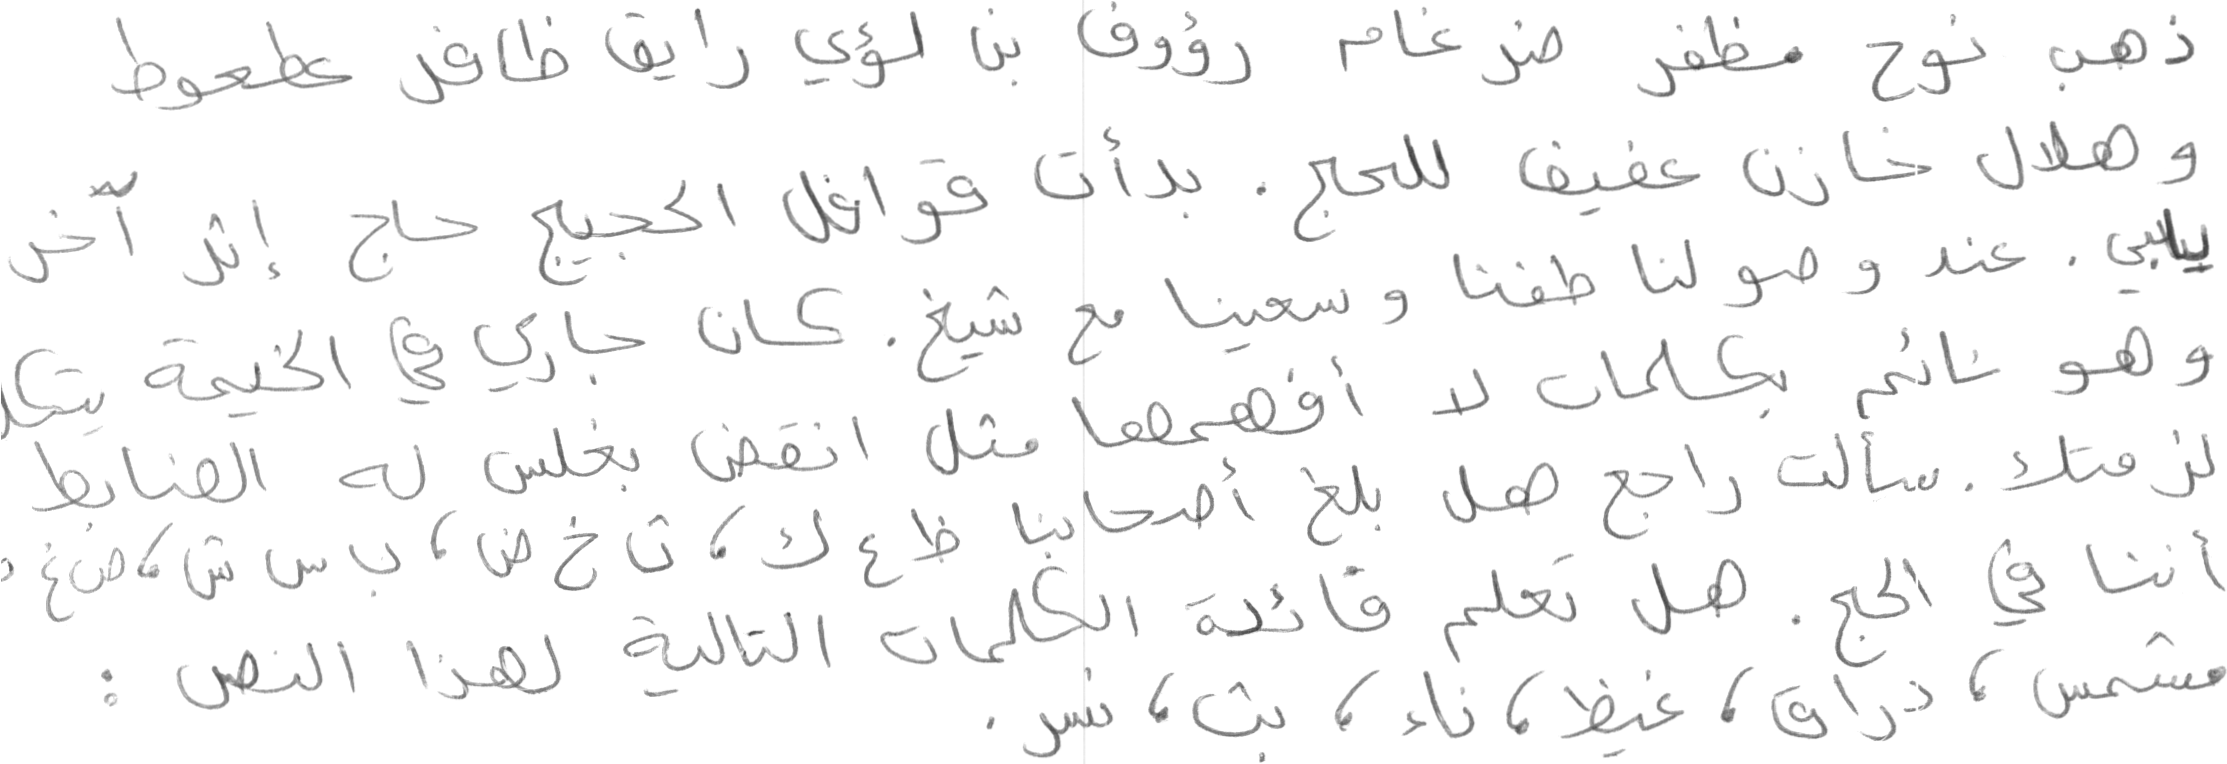 ذهب نوح مظفر ضرغام رؤوف بن لؤي رايق ظافر عطعوط
وهلال خازن عفيف للحج. بدأت قوافل الحجيج حاج إثر آخر
يلبي. عند وصولنا طفنا وسعينا مع شيخ. كان جاري في الخيمة يتكلم
وهو نائم بكلمات لا أفهمها مثل انقض بغلس له الضابط
لزمتك. سألت راجع هل بلغ أصحابنا ظ ع ك، ث خ ض، ب س ش، ض غ
أننا في الحج. هل تعلم قائلة الكلمات التالية لهذا النص :
مشمس، دراق، غيظ، ناء، بث، نسر.